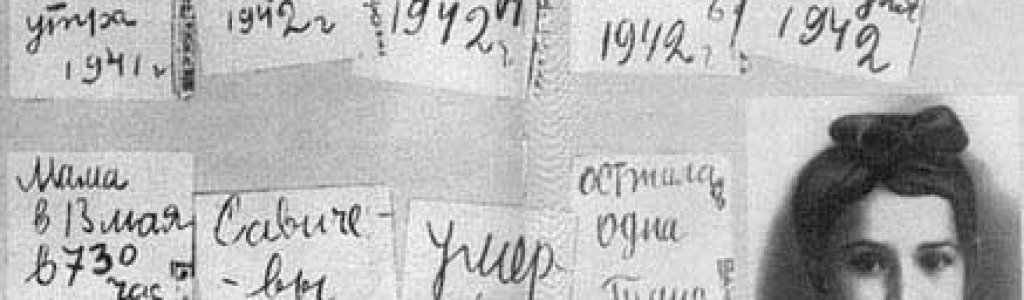 утра
1941 г
1942 г
1942
г
1942 г
1942
Мама
в 13 мая
в 730
час
Савиче-
Умер
осталась
одна
Таня